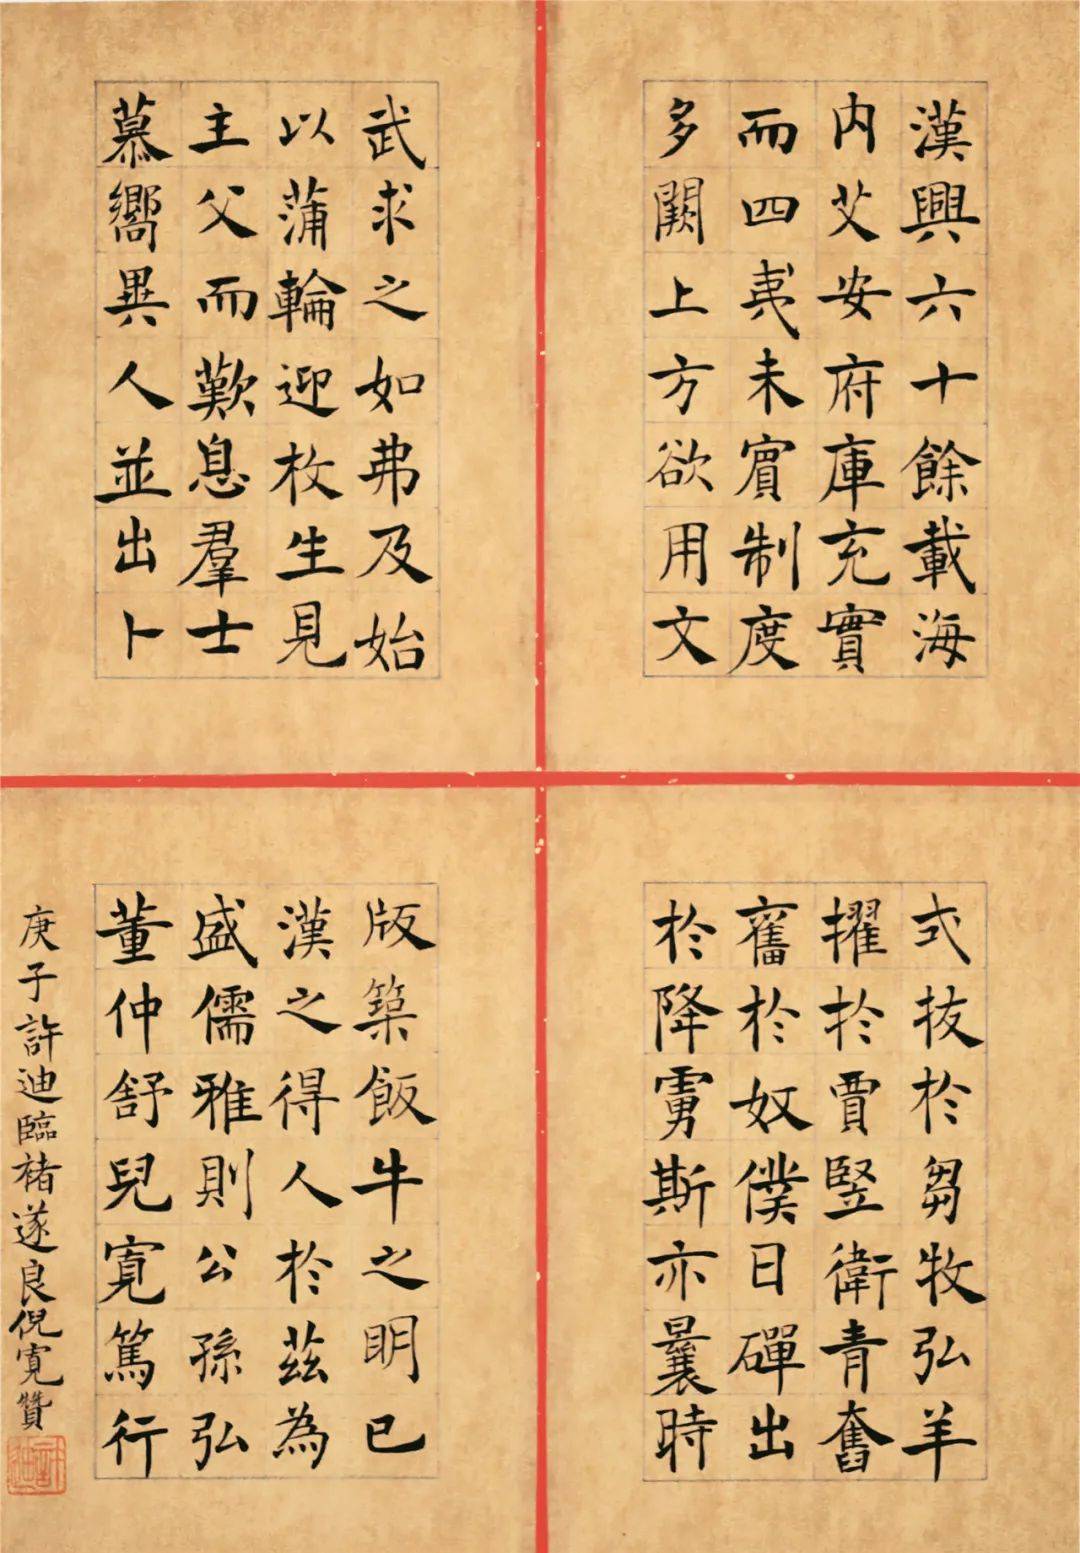 漢興六十餘載海
内艾安府庫充實
而四夷未賓制度
多闕上方欲用文
武求之如弗及始
以蒲輪迎枚生見
主父而歎息羣士
慕嚮異人並出卜
式拔於芻牧弘羊
擢於賈豎衛青奮
奮於奴僕日磾出
於降虜斯亦曩時
版築飯牛之明已
漢之得人於茲為
盛儒雅則公孫弘
董仲舒兒寬篤行
庚子許迪臨褚遂良倪寬贊
許迪